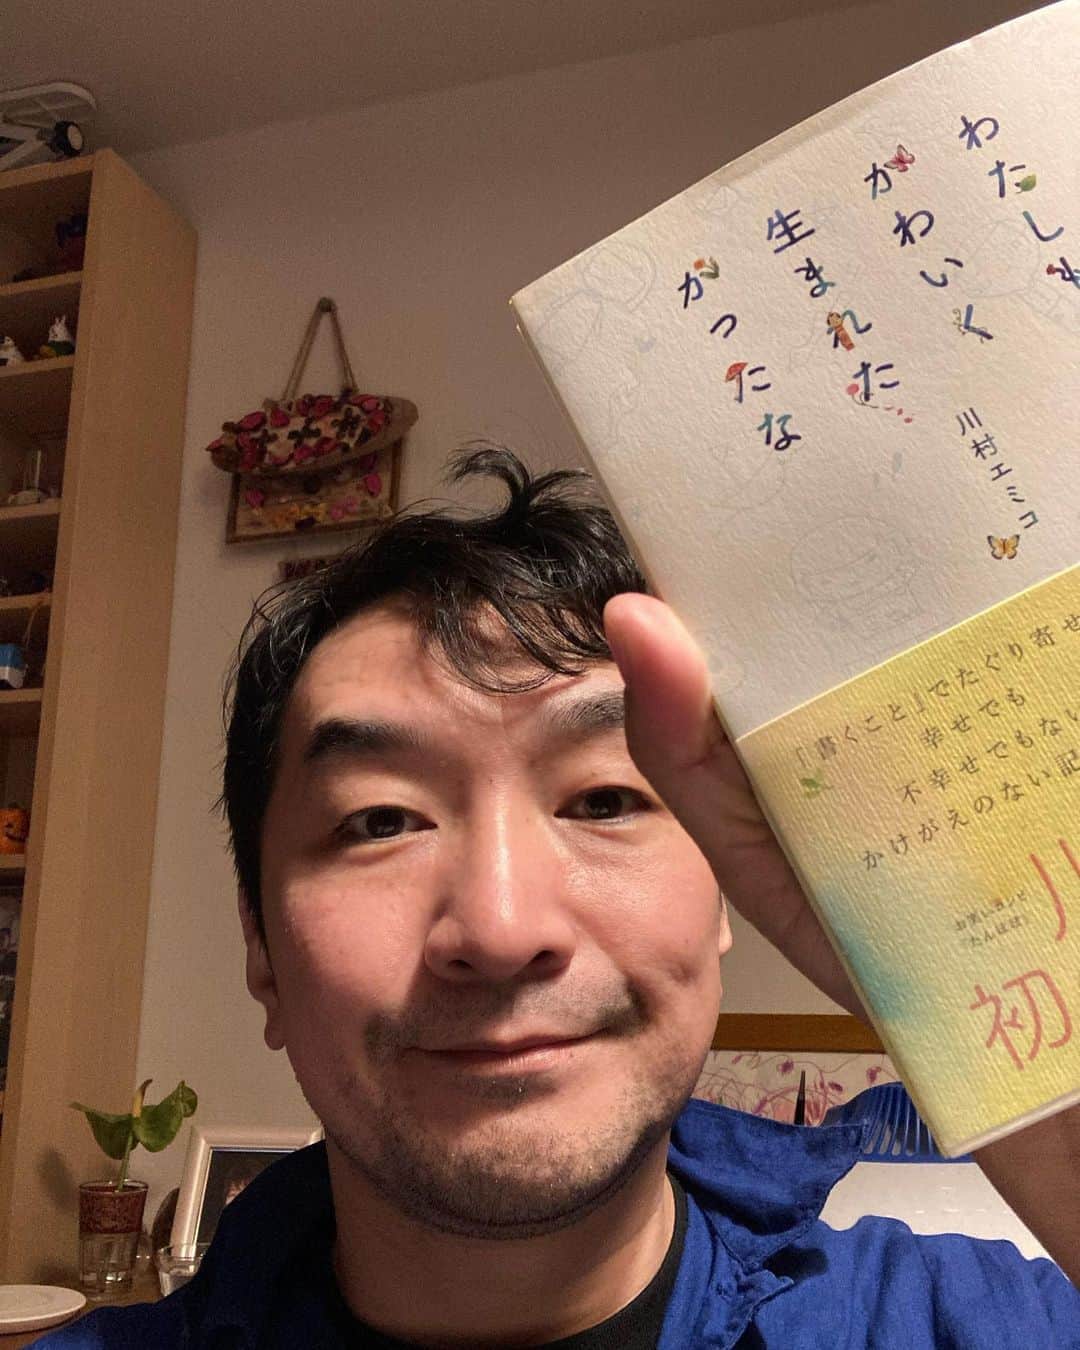 わたしも
かわいく
生まれた
かったな
川村エミコ
『書くこと』でたぐり寄せ
幸せでも
不幸せでもない
かけがえのない記
お笑いコンビ
「たんぽぽ」
川
初